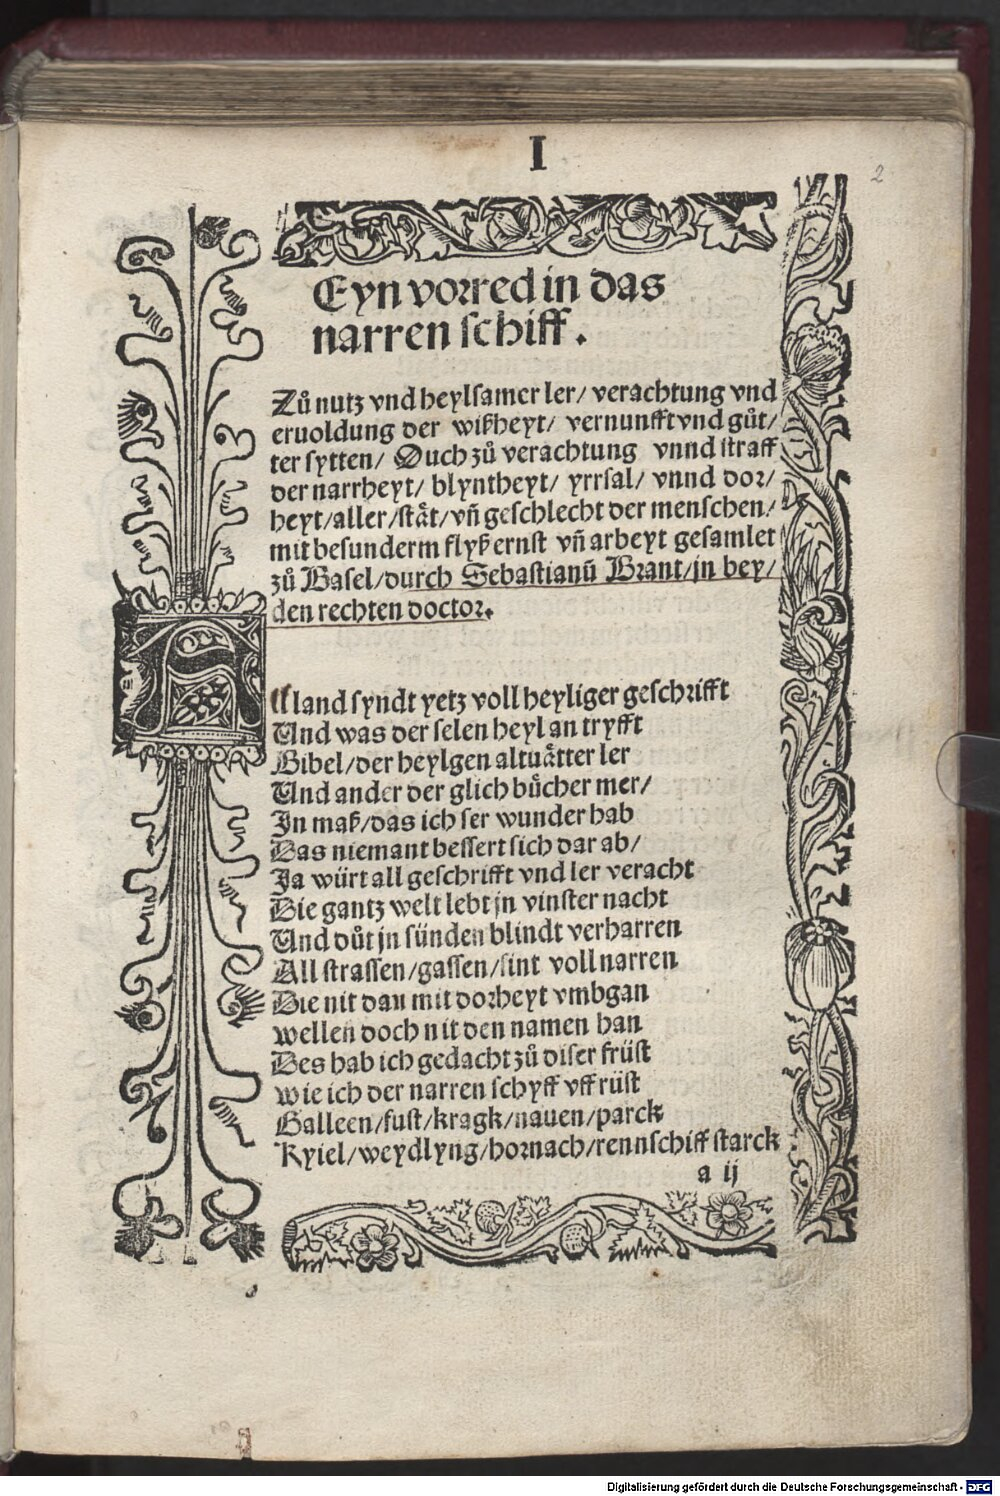 I
2
Eyn vorred in das
narren schiff.
Zů nutz vnd heylsamer ler/ verachtung vnd
eruoldung der wißheyt/ vernunfft vnd gůt/
ter sytten/ Ouch zů verachtung vnnd straff
der narrheyt/ blyntheyt/ yrrsal/ vnnd dor/
heyt/ aller/ stät/ vñ geschlecht der menschen/
mit besunderm flyß ernst vñ arbeyt gesamlet
zů Basel/ durch Sebastianū Brant/ jn bey/
den rechten doctor.
All land syndt yetz voll heyliger geschrifft
Vnd was der selen heyl an trifft
Bibel/ der heylgen altuätter ler
Vnd ander der glich bůcher mer/
In maß/ das ich ser wunder hab
Das niemant bessert sich dar ab/
Ja würt all geschrifft vnd ler veracht
Die gantz welt lebt jn vinster nacht
Vnd důt jn sünden blindt verharren
All strassen/ gassen/ sint voll narren
Die nit dan mit dorheyt vmbgan
wellen doch nit den namen han
Des hab ich gedacht zů diser früst
wie ich der narren schyff vff rüst
Galleen/ fust/ kragk/ nauen/ parck
Kyiel/ weydlyng/ hornach/ rennschiff starck
a ij
Digitalisierung gefördert durch die Deutsche Forschungsgemeinschaft - DFG